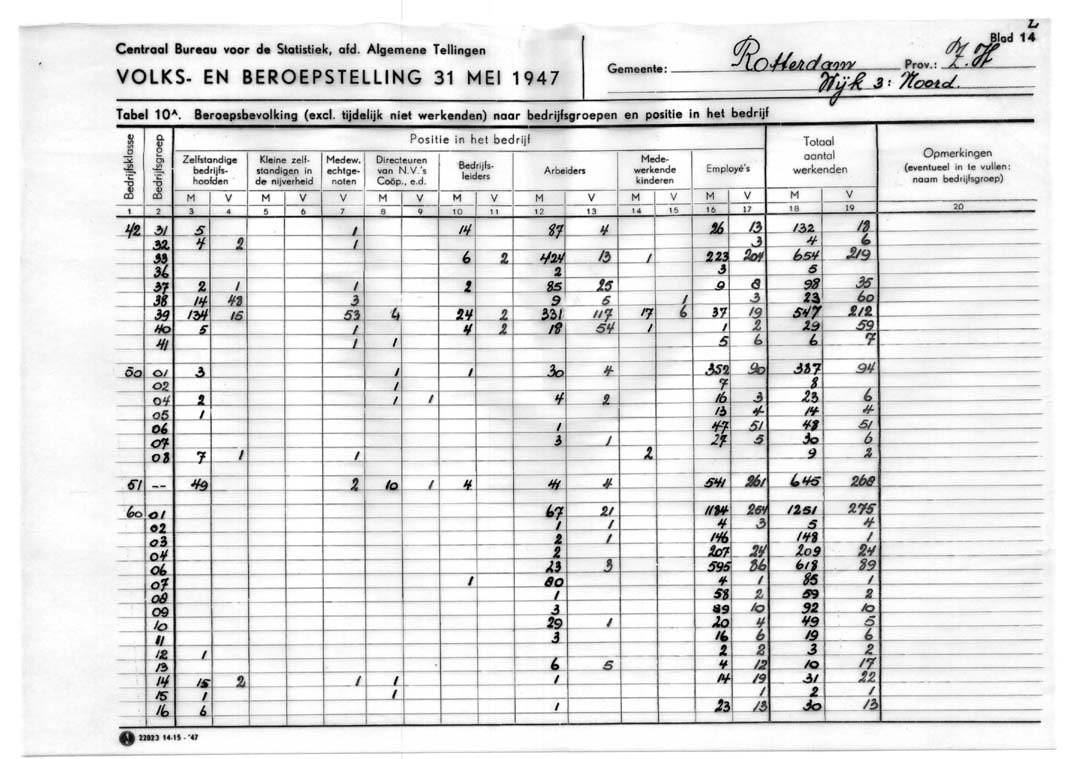 Z
Blad 14
Centraal Bureau voor de Statistiek, afd. Algemene Tellingen
VOLKS- EN BEROEPSTELLING 31 MEI 1947
Gemeente: Rotterdam Prov.: Z. H
Wijk 3: Noord.
Tabel 10A. Beroepsbevolking (excl. tijdelijk niet werkenden) naar bedrijfsgroepen en positie in het bedrijf
Bedrijfsklasse
Bedrijfsgroep
Positie in het bedrijf
Zelfstandige bedrijfs-hoofden
Kleine zelf-standigen in de nijverheid
Medew. echtge-noten
Directeuren van N.V.'s Coöp., e.d.
Bedrijfs-leiders
Arbeiders
Mede-werkende kinderen
Employé's
Totaal aantal werkenden
Opmerkingen (eventueel in te vullen: naam bedrijfsgroep)
M V M V V M V M V M V M V M V M V
1 2 3 4 5 6 7 8 9 10 11 12 13 14 15 16 17 18 19 20
42 31 5 1 14 87 4 26 13 132 18
32 4 2 1 3 4 6
33 6 2 424 13 1 223 204 654 219
36 2 3 5
37 2 1 1 2 85 25 9 8 98 35
38 14 48 3 9 5 1 3 23 60
39 134 15 53 4 24 2 331 117 17 6 37 19 547 212
40 5 1 4 2 18 54 1 1 2 29 59
41 1 1 5 6 6 7
50 01 3 1 1 30 4 352 90 387 94
02 1 7 8
04 2 1 1 4 2 16 3 23 6
05 1 13 4 14 4
06 1 47 51 48 51
07 3 1 27 5 30 6
08 7 1 1 2 9 2
51 -- 49 2 10 1 4 41 4 541 261 645 268
60 01 67 21 1184 254 1251 275
02 1 1 4 3 5 4
03 2 1 146 148 1
04 2 207 24 209 24
06 23 3 595 86 618 89
07 1 80 4 1 85 1
08 1 58 2 59 2
09 3 89 10 92 10
10 29 1 20 4 49 5
11 3 16 6 19 6
12 1 2 2 3 2
13 6 5 4 12 10 17
14 15 2 1 1 1 14 19 31 22
15 1 1 1 2 1
16 6 1 23 13 30 13
22823 14-15 - '47